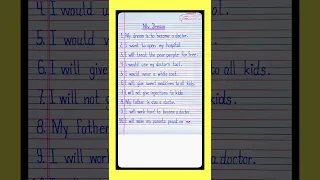 My Dream
1. My dream is to become a doctor.
2. I want to open my hospital.
3. I will treat the poor people for free.
4. I would use my doctor's tool.
5. I would wear a white coat.
6. I will give sweet medicines to all kids.
7. I will not give injections to kids.
8. My father is also a doctor.
9. I will work hard to become a doctor.
10. I will make my parents proud on me.
4. I would
5. I would
6. I will give to all kids.
7. I will not
8. My father
9. I will work a doctor.